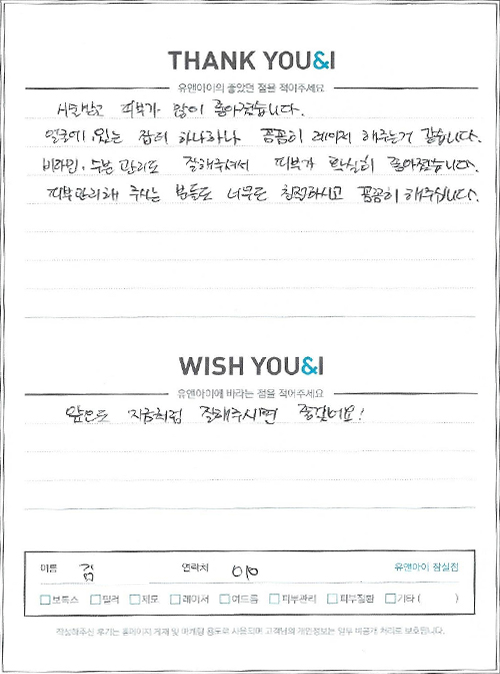 THANK YOU&I
유앤아이의 좋았던 점을 적어주세요
시술받고 피부가 많이 좋아졌습니다.
얼굴에 있는 잡티 하나하나 꼼꼼히 레이저 해주는거 같습니다.
비타민, 수분 관리도 잘해주셔서 피부가 확실히 좋아졌습니다.
피부관리해 주시는 분들도 너무도 친절하시고 꼼꼼히 해주십니다.
WISH YOU&I
유앤아이에 바라는 점을 적어주세요
앞으로도 지금처럼 잘해주시면 좋겠어요!
이름 김 연락처 010 유앤아이 잠실점
보톡스 필러 제모 레이저 여드름 피부관리 피부질환 기타 ( )
작성해주신 후기는 홈페이지 게재 및 마케팅 용도로 사용되며 고객님의 개인정보는 일부 비공개 처리로 보호됩니다.